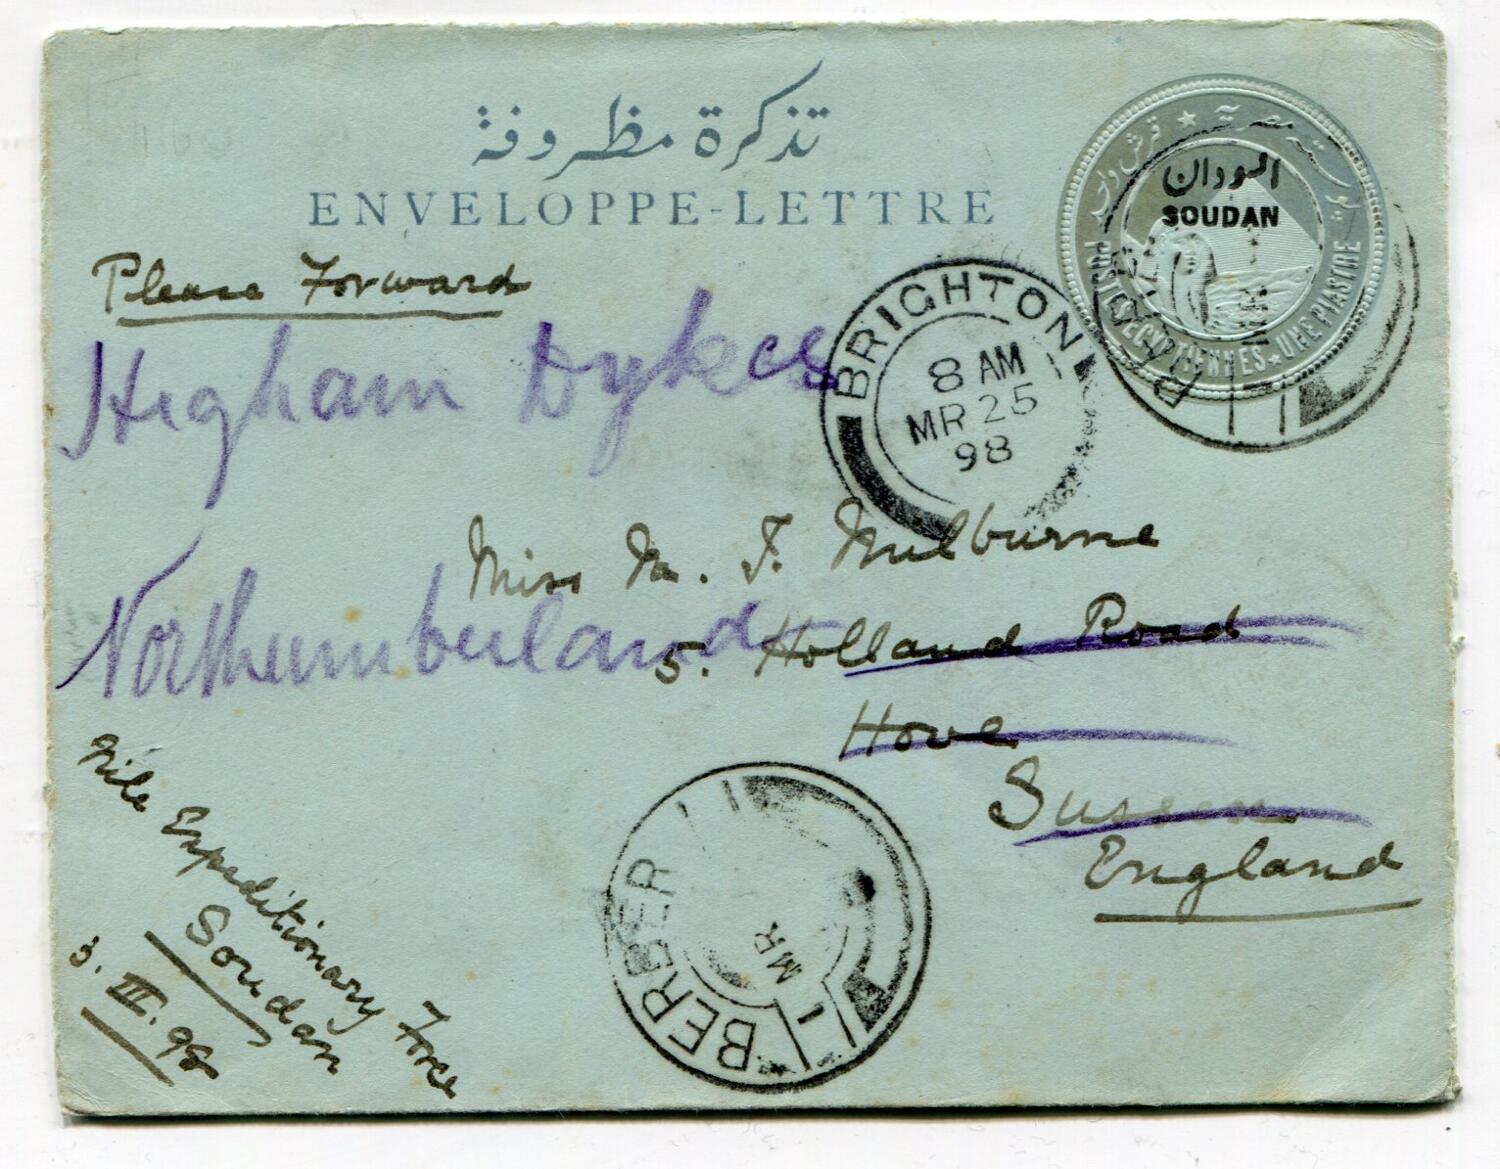 تذكرة مظروفة
ENVELOPPE-LETTRE
بوستة مصرية ★ قرش واحد
السودان
SOUDAN
POSTES EGYPTIENNES ★ UNE PIASTRE
BERBER
Please Forward
BRIGHTON
8 AM
MR 25
98
Higham Dykes
Northumberland
Miss M. F. Milburne
5. Holland Road
Hove
Sussex
England
Nile Expeditionary Force
Soudan
3. III. 98
BERBER
MR